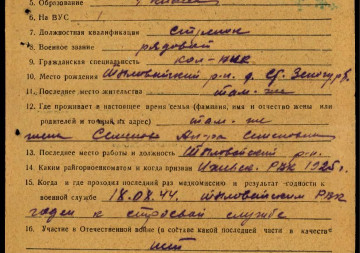 5. Образование 4 класса
6. На ВУС 1
7. Должностная квалификация стрелок
8. Военное звание рядовой
9. Гражданская специальность кол-ник
10. Место рождения р-н. д.
11. Последнее место жительства там-же
12. Где проживает в настоящее время семья (фамилия, имя и отчество жены или
родителей и точный их адрес) там-же
жена Семенова Семеновна
13. Последнее место работы и должность р-н.
14. Каким райгорвоенкоматом и когда призван РВК 1925г.
15. Когда и где проходил последний раз медкомиссию и результат годности к
военной службе 18.08.44. РВК
годен к строевой службе
16. Участие в Отечественной войне (в составе какой последней части в качест